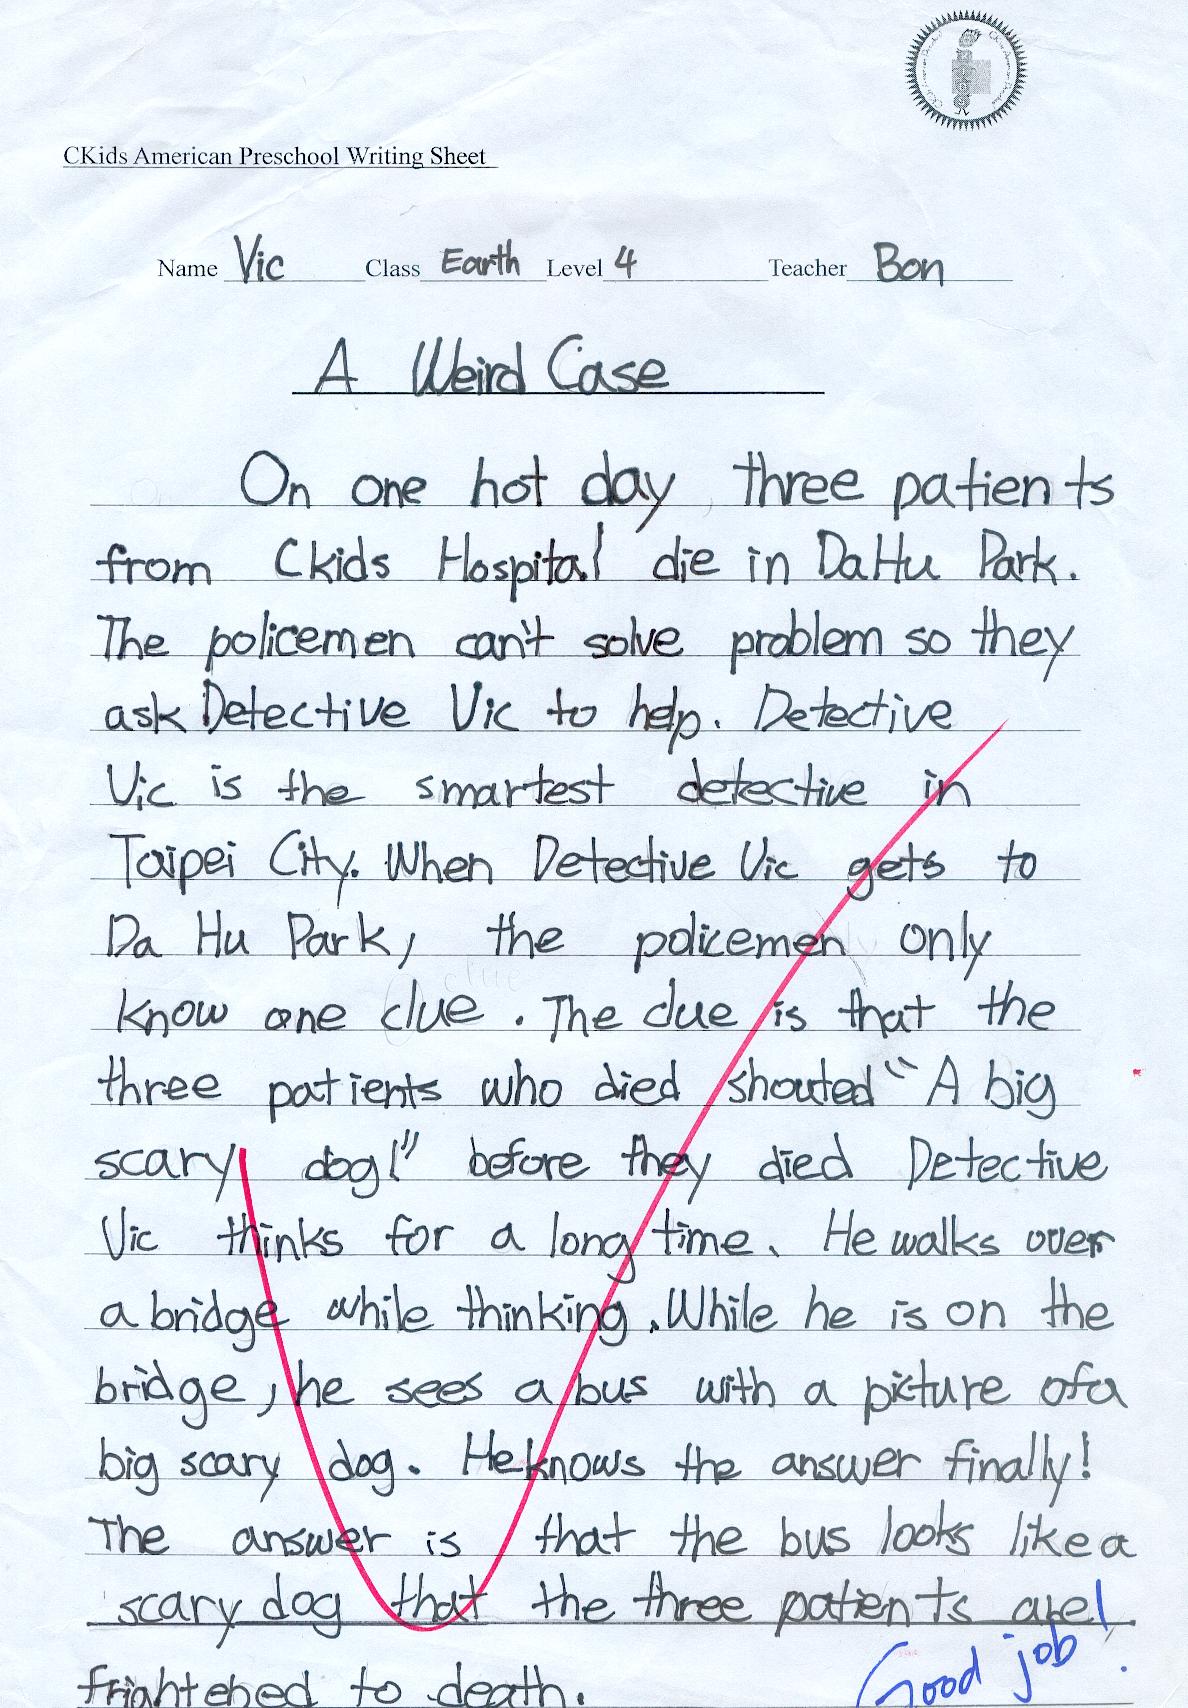 CKids American Preschool Writing Sheet
Name Vic Class Earth Level 4 Teacher Bon
A Weird Case
On one hot day, three patients
from Ckids Hospital die in DaHu Park.
The policemen can't solve problem so they
ask Detective Vic to help. Detective
Vic is the smartest detective in
Taipei City. When Detective Vic gets to
Da Hu Park, the policemen only
know one clue. The clue is that the
three patients who died shouted "A big
scary dog!" before they died Detective
Vic thinks for a long time. He walks over
a bridge while thinking. While he is on the
bridge, he sees a bus with a picture of a
big scary dog. He knows the answer finally!
The answer is that the bus looks like a
scary dog that the three patients are
frightened to death.
Good job!